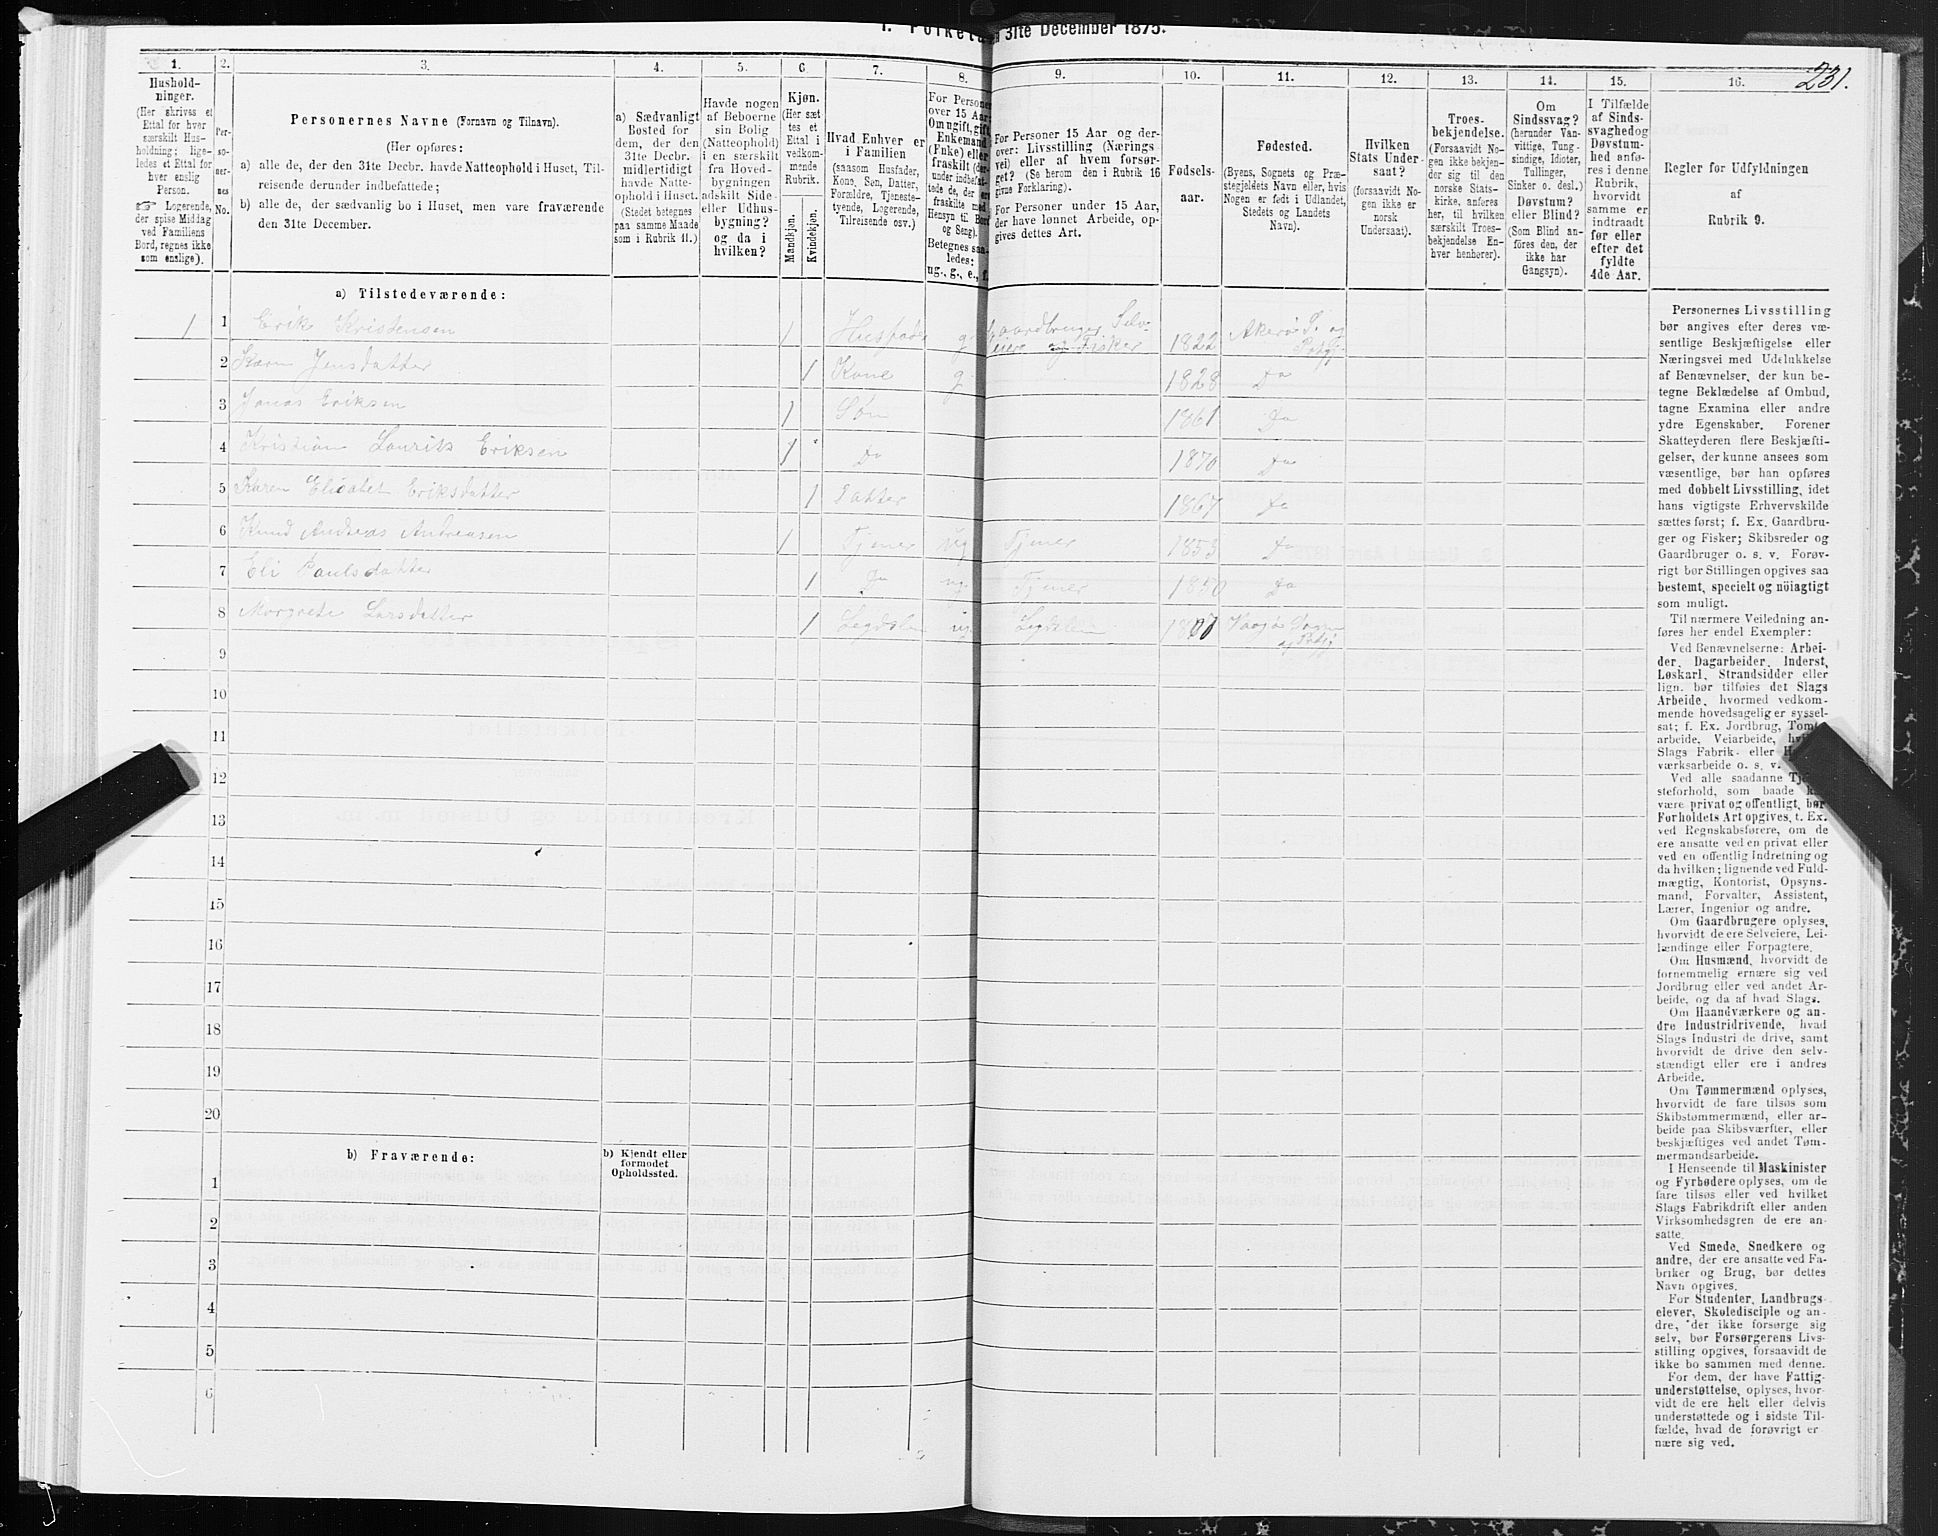 I. Folketal 31te December 1875.
231.
1.
2.
3.
4.
5.
6
7.
8.
9.
10.
11.
12.
13.
14.
15.
16.
Hushold-
ninger.
(Her skrives et
Ettal for hver
særskilt Hus-
holdning; lige-
ledes et Ettal for
hver enslig
Person.
☞ Logerende,
der spise Middag
ved Familiens
Bord, regnes ikke
som enslige).
Per-
so-
ner-
nes
No.
Personernes Navne (Fornavn og Tilnavn).
(Her opføres:
a) alle de, der den 31te Decbr. havde Natteophold i Huset, Til-
reisende derunder indbefattede;
b) alle de, der sædvanlig bo i Huset, men vare fraværende
den 31te December.
a) Sædvanligt
Bosted for
dem, der den
31te Decbr.
midlertidigt
havde Natte-
ophold i Huset.
(Stedet betegnes
paa samme Maade
som i Rubrik 11.)
Havde nogen
af Beboerne
sin Bolig
(Natteophold)
i en særskilt
fra Hoved-
bygningen
adskilt Side-
eller Udhus-
bygning?
og da i
hvilken?
Kjøn.
(Her sæt
tes et
Ettal i
vedkom-
mende
Rubrik.
Mandkjøn.
Kvindekjøn.
Hvad Enhver er
i Familien
(saasom Husfader,
Kone, Søn, Datter,
Forældre, Tjeneste-
tyende, Logerende,
Tilreisende osv.)
For Personer
over 15 Aar:
Om ugift, gift,
Enkemand
(Enke) eller
fraskilt (der-
under indbefat-
tede de, der ere
fraskilte med
Hensyn til Bord
og Seng).
Betegnes saa-
ledes:
ug., g., e., f.
For Personer 15 Aar og der-
over: Livsstilling (Nærings-
vei) eller af hvem forsør-
get? (Se herom den i Rubrik 16
givne Forklaring).
For Personer under 15 Aar,
der have lønnet Arbeide, op-
gives dettes Art.
Fødsels-
aar.
Fødested.
(Byens, Sognets og Præ-
stegjeldets Navn eller, hvis
Nogen er født i Udlandet,
Stedets og Landets
Navn).
Hvilken
Stats Under-
saat?
(forsaavidt No-
gen ikke er
norsk
Undersaat).
Troes-
bekjendelse.
(Forsaavidt No-
gen ikke bekjen-
der sig til den
norske Stats-
kirke, anføres
her, til hvilken
særskilt Troes-
bekjendelse En-
hver henhører).
Om
Sindssvag?
(herunder Van-
vittige, Tung-
sindige, Idioter,
Tullinger,
Sinker o. desl.)
Døvstum?
eller Blind?
(Som Blind an-
føres den, der
ikke har
Gangsyn).
I Tilfælde
af Sinds-
svaghed og
Døvstum-
hed anfø-
res i denne
Rubrik,
hvorvidt
samme er
indtraadt
før eller
efter det
fyldte
4de Aar.
Regler for Udfyldningen
af
Rubrik 9.
a) Tilstedeværende:
1 1 Erik Kristensen 1 Husfader g Gaardbruger Selv-
eier og Fisker 1822 Akerø S. og
Præstgj.
2 Karn Jensdatter 1 Kone g 1828 Do
3 Jonas Eriksen 1 Søn 1861 Do
4 Kristian Laurits Eriksen 1 Do 1870 Do
5 Karen Elisabet Eriksdatter 1 Datter 1867 Do
6 Knud Andreas Andreasen 1 Tjener ug Tjener 1853 Do
7 Eli Paulsdatter 1 Do ug Tjener 1850 Do
8 Margrete Larsdatter 1 Legdslem ug Legdslem Vaagø Sogn
og Præstgj
9
10
11
12
13
14
15
16
17
18
19
20
b) Fraværende:
b) Kjendt eller
formodet
Opholdssted.
1
2
3
4
5
6
Personernes Livsstilling
bør angives efter deres væ-
sentlige Beskjæftigelse eller
Næringsvei med Udelukkelse
af Benævnelser, der kun be-
tegne Beklædelse af Ombud,
tagne Examina eller andre
ydre Egenskaber. Forener
Skatteyderen flere Beskjæfti-
gelser, der kunne ansees som
væsentlige, bør han opføres
med dobbelt Livsstilling, idet
hans vigtigste Erhvervskilde
sættes først; f. Ex. Gaardbru-
ger og Fisker; Skibsreder og
Gaardbruger o. s. v. Forøv-
rigt bør Stillingen opgives saa
bestemt, specielt og nöiagtigt
som muligt.
Til nærmere Veiledning an-
føres her endel Exempler:
Ved Benævnelserne: Arbei-
der, Dagarbeider, Inderst,
Løskarl, Strandsidder eller
lign. bør tilføies det Slags
Arbeide, hvormed vedkom-
mende hovedsagelig er syssel-
sat; f. Ex. Jordbrug, Tomte-
arbeide, Veiarbeide,
Slags Fabrik- eller
værksarbeide o. s. v.
Ved alle saadanne
steforhold, som baade
være privat og offentligt, bør
Forholdets Art opgives, t. Ex.
ved Regnskabsførere, om de
ere ansatte ved en privat eller
ved en offentlig Indretning og
da hvilken; lignende ved Fuld-
mægtig, Kontorist, Opsyns-
mand, Forvalter, Assistent,
Lærer, Ingeniør og andre.
Om Gaardbrugere oplyses,
hvorvidt de ere Selveiere, Lei-
lændinge eller Forpagtere.
Om Husmænd, hvorvidt de
fornemmelig ernære sig ved
Jordbrug eller ved andet Ar-
beide, og da af hvad Slags.
Om Haandværkere og an-
dre Industridrivende, hvad
Slags Industri de drive, samt
hvorvidt de drive den selv-
stændigt eller ere i andres
Arbeide.
Om Tømmermænd oplyses,
hvorvidt de fare tilsøs som
Skibstømmermænd, eller ar-
beide paa Skibsværfter, eller
beskjæftiges ved andet Tøm-
mermandsarbeide.
I Henseende til Maskinister
og Fyrbødere oplyses, om de
fare tilsøs eller ved hvilket
Slags Fabrikdrift eller anden
Virksomhedsgren de ere an-
satte.
Ved Smede, Snedkere og
andre, der ere ansatte ved Fa-
briker og Brug, bør dettes
Navn opgives.
For Studenter, Landbrugs-
elever, Skoledisciple og an-
dre, der ikke forsørge sig
selv, bør Forsørgerens Livs-
stilling opgives, forsaavidt de
ikke bo sammen med denne.
For dem, der have Fattig-
understøttelse, oplyses, hvor-
vidt de ere helt eller delvis
understøttede og i sidste Til-
fælde, hvad de forøvrigt er-
nære sig ved.